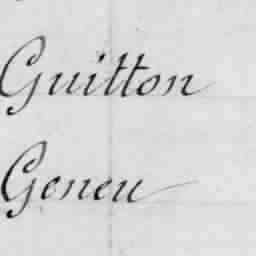 Guitton
Geneu